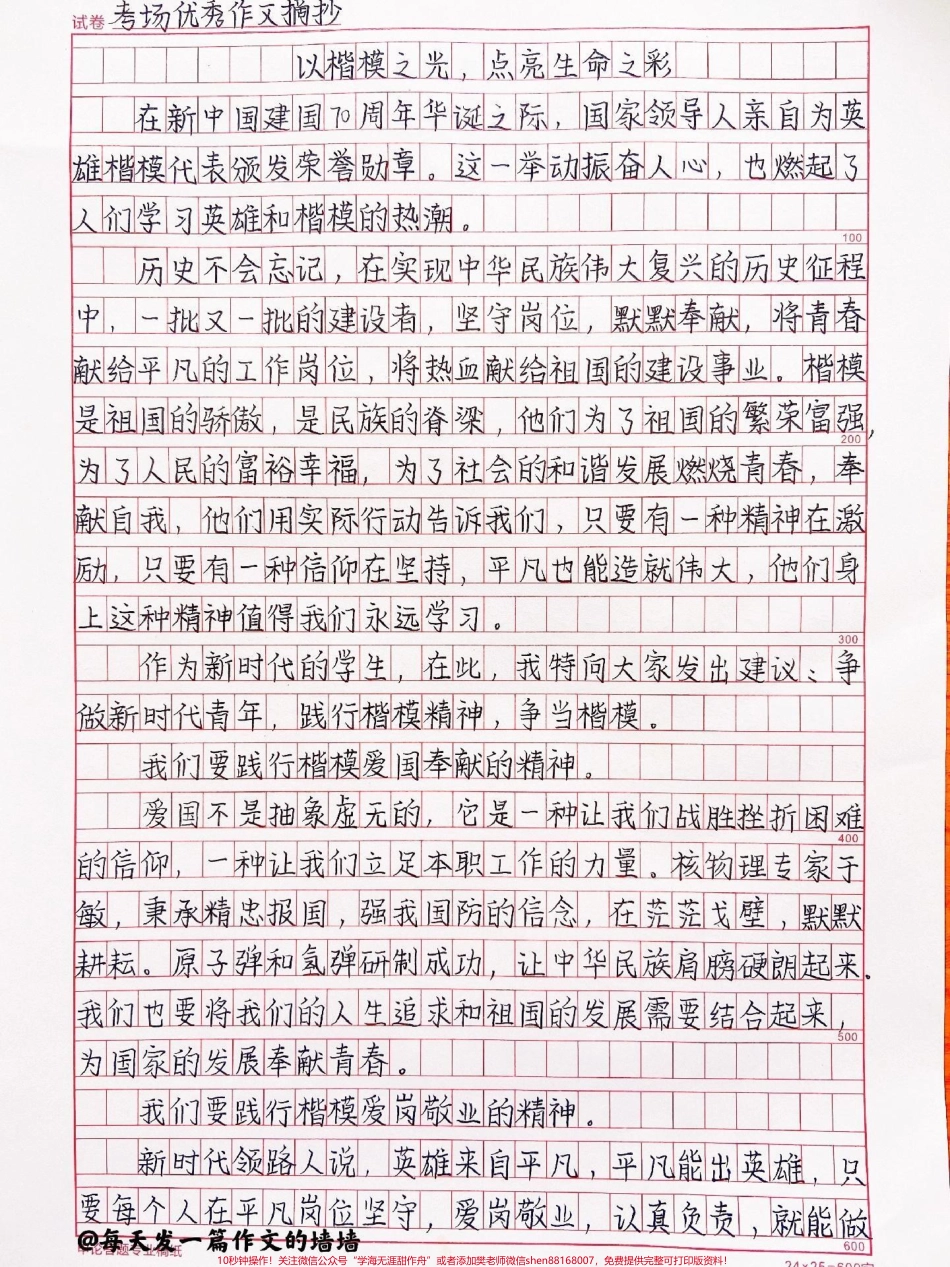 试卷 考场优秀作文摘抄
以楷模之光，点亮生命之彩
在新中国建国70周年华诞之际，国家领导人亲自为英
雄楷模代表颁发荣誉勋章。这一举动振奋人心，也燃起了
人们学习英雄和楷模的热潮。
100
历史不会忘记，在实现中华民族伟大复兴的历史征程
中，一批又一批的建设者，坚守岗位，默默奉献，将青春
献给平凡的工作岗位，将热血献给祖国的建设事业。楷模
是祖国的骄傲，是民族的脊梁，他们为了祖国的繁荣富强，
200
为了人民的富裕幸福，为了社会的和谐发展燃烧青春，奉
献自我，他们用实际行动告诉我们，只要有一种精神在激
励，只要有一种信仰在坚持，平凡也能造就伟大，他们身
上这种精神值得我们永远学习。
300
作为新时代的学生，在此，我特向大家发出建议：争
做新时代青年，践行楷模精神，争当楷模。
我们要践行楷模爱国奉献的精神。
爱国不是抽象虚无的，它是一种让我们战胜挫折困难
400
的信仰，一种让我们立足本职工作的力量。核物理专家于
敏，秉承精忠报国，强我国防的信念，在茫茫戈壁，默默
耕耘。原子弹和氢弹研制成功，让中华民族肩膀硬朗起来。
我们也要将我们的人生追求和祖国的发展需要结合起来，
500
为国家的发展奉献青春。
我们要践行楷模爱岗敬业的精神。
新时代领路人说，英雄来自平凡，平凡能出英雄，只
要每个人在平凡岗位坚守，爱岗敬业，认真负责，就能做
@每天发一篇作文的墙墙
申论答题专业稿纸
600
10秒钟操作！关注微信公众号“学海无涯甜作舟”或者添加樊老师微信shen88168007，免费提供完整可打印版资料！
24×25=600字